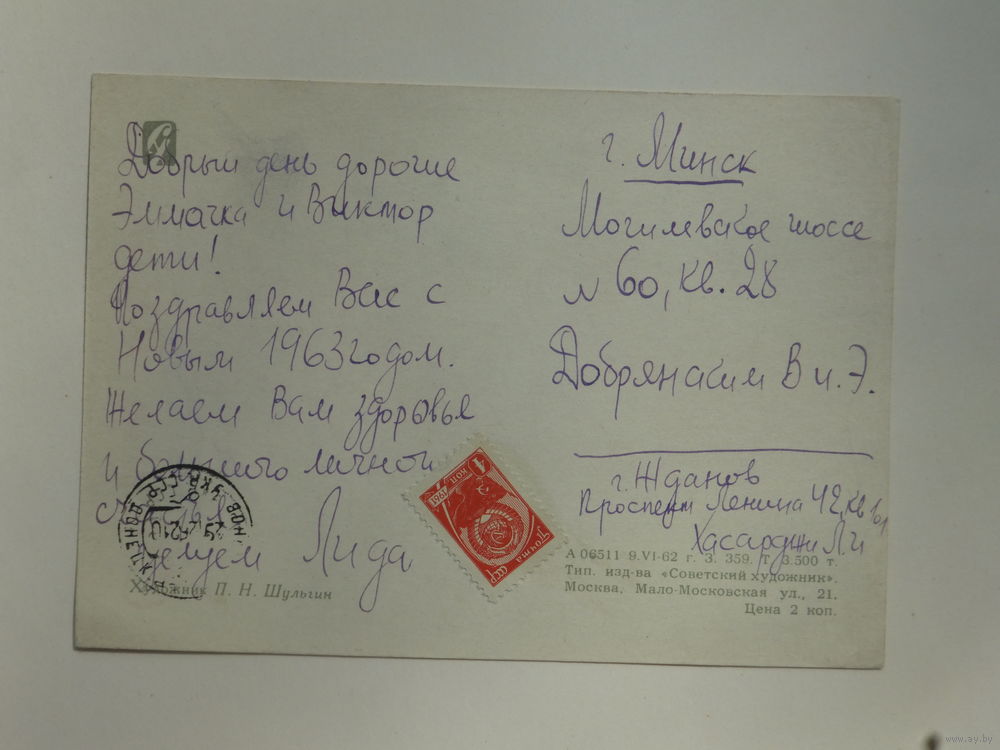 Добрый день дорогие
Эммачка и Виктор
дети!
Поздравляем Вас с
Новым 1963 годом.
Желаем Вам здоровья
и большого личного
Лида
Художник П. Н. Шульгин
г. Минск
Могилевское шоссе
N 60, кв. 28
Добрянским В и Э.
г. Жданов
Проспект Ленина 42, кв 101
Хасарджи Л и
А 06511 9.VI-62 г. З. 359. Т. 3.500 т.
Тип. изд-ва «Советский художник».
Москва, Мало-Московская ул., 21.
Цена 2 коп.
4 коп. 1961
Почта СССР
УКР. ССР
www.ay.by